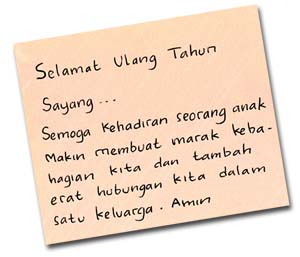 Selamat Ulang Tahun
Sayang ...
Semoga kehadiran seorang anak
Makin membuat marak keba-
hagian kita dan tambah
erat hubungan kita dalam
satu keluarga. Amin